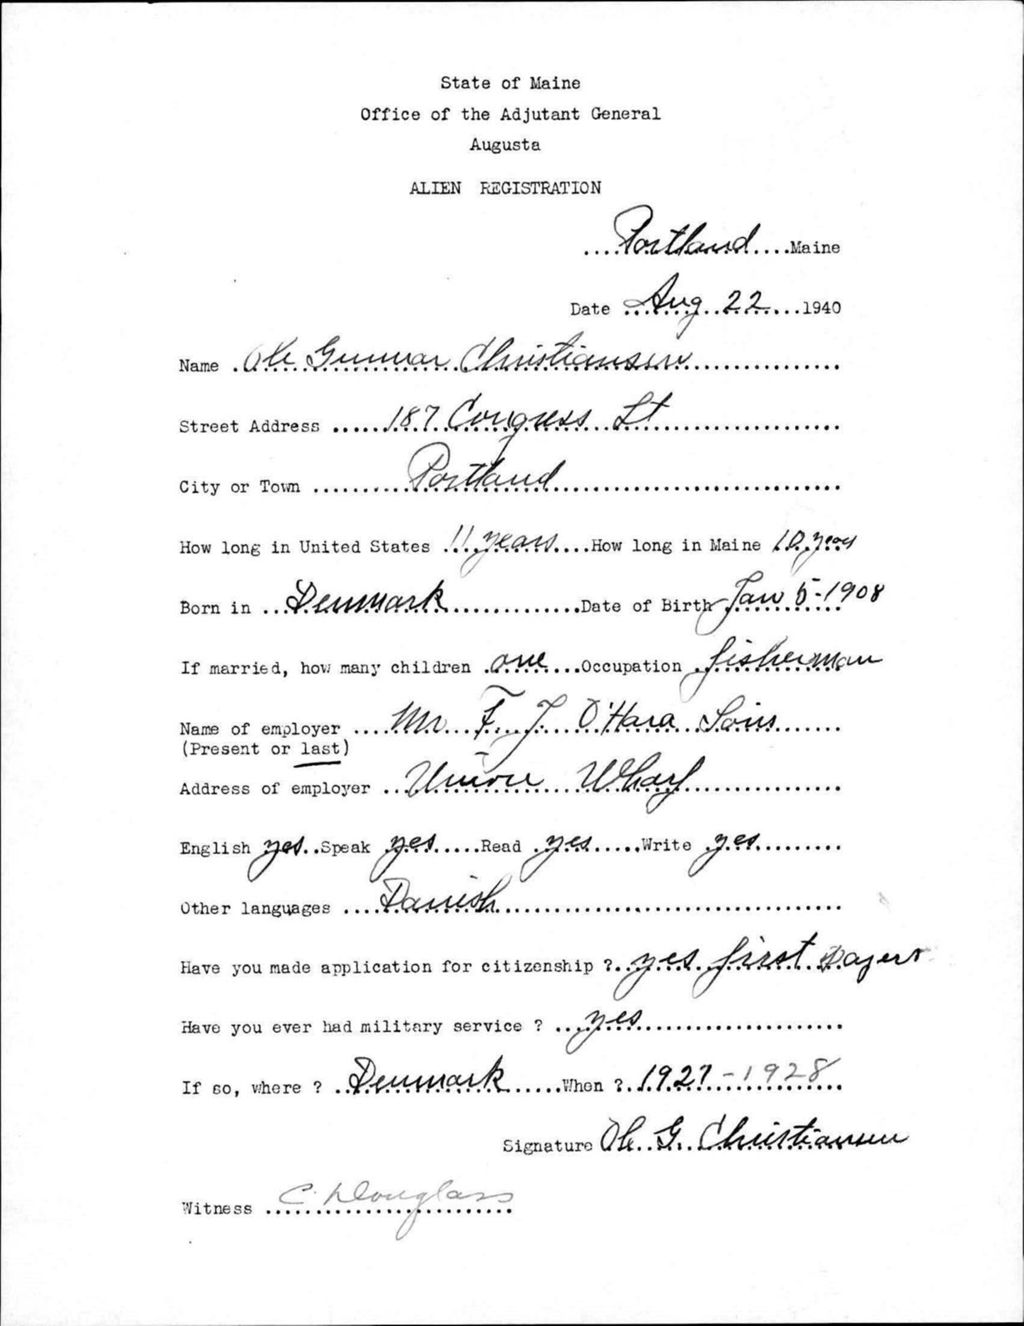 State of Maine
Office of the Adjutant General
Augusta
ALIEN REGISTRATION
....Portland....Maine
Date ..Aug..22...1940
Name .Ole Gunnar Christiansen...............
Street Address ......187 Congress St...................
City or Town ..........Portland.............................
How long in United States ..11 years....How long in Maine 10 years
Born in ...Denmark..............Date of Birth Jan 5-1908
If married, how many children .one...Occupation .fisherman
Name of employer ....Mr. F. J. O'Hara Sons.......
(Present or last)
Address of employer ..Union Wharf................
English yes..Speak yes.....Read .yes.....Write .yes.........
Other languages ....Danish...................................
Have you made application for citizenship ?..yes first papers
Have you ever had military service ? ...yes......................
If so, where ? ..Denmark......When ?..1927-1928
Signature Ole.G..Christiansen
Witness C. Douglass